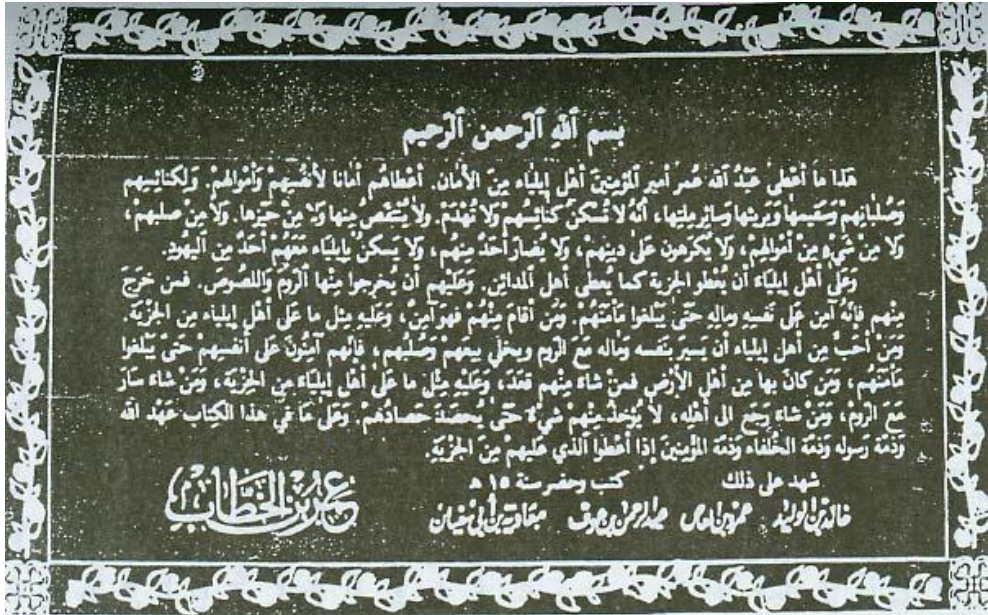 بسم ٱللهِ ٱلرَّحمن ٱلرَّحيم
هَذا ما أعْطى عَبْدُ ٱلله عُمر أمير ٱلمؤمِنِينَ أهْل إيلياء مِنَ الأمان. أعْطاهُم أمانا لأنفُسِهمْ وَأموالهمْ. وَلِكنائسِهم
وَصُلبانِهِمْ وَسَقيمِها وَبَريئها وَسائِرِ مِلتِها، أنَّهُ لا تُسكَنُ كَنائسُهمْ وَلا تُهْدَمُ. ولا يُنْتَقصُ مِنها وَلا مِنْ حَيِّزها. وَلا مِنْ صليبهمْ،
وَلا مِن شَيْءٍ مِنْ أمْوالِهمْ، وَلا يُكرَهونَ عَلى دينهمْ، وَلا يُضارّ أحَدٌ مِنهُم، ولا يَسكنُ بإيلياء مَعَهُمْ أحَدٌ مِن ٱليَهودِ.
وَعَلى أهْل إيلياءَ أن يُعْطو الجزية كما يُعطى أهل المدائن. وَعَليْهم أن يُخرجوا مِنْها ٱلرّومَ وَاللصُوصَ. فمن خرَجَ
مِنْهم فإنَّهُ آمِن عَلى نَفسِهِ ومالهِ حَتّى يَبْلغوا مَأمَنَهُمْ. وَمَن أقامَ مِنْهُمْ فَهوَ آمِنٌ، وَعَليهِ مِثل ما عَلى أهْل إيلياء مِن الجزيَة.
وَمَنْ أحَبَّ مِن أهل إيلياء أن يَسيرَ بنَفسه وَماله مَعَ الروم ويخلي بيعهمْ وَصُلبهم، فإنَّهم آمِنُونَ عَلى أنفسِهمْ حَتّى يَبْلغوا
مَأمَنَهُم، وَمَن كانَ بها مِن أهْل الأرْض فمنْ شاءَ مِنْهم قعَدَ، وَعَليْهِ مِثْلُ ما عَلى أهْل إيليَاءَ مِن الجزيَة، وَمَنْ شاءَ سَارَ
مَعَ الرومْ، وَمَنْ شاء رَجَع الى أهْلهِ، لا يُؤخذ مِنهمْ شيْء حَتّى يُحصَدَ حَصادُهُمْ. وَعَلى مَا في هذا الكِتاب عَهْد الله
وَذمَة رَسوله وَذمَة الخلفاء وَذمَة المؤمِنينَ إذا أعْطوا الَّذي عَليهمْ مِنَ الجزيَة.
شهد على ذلك كتب وحضر سنة ١٥ هـ
خالد بن الوليد عمرو بن العاص عبد الرحمن بن عوف معاوية بن أبي سفيان
عمر بن الخطاب